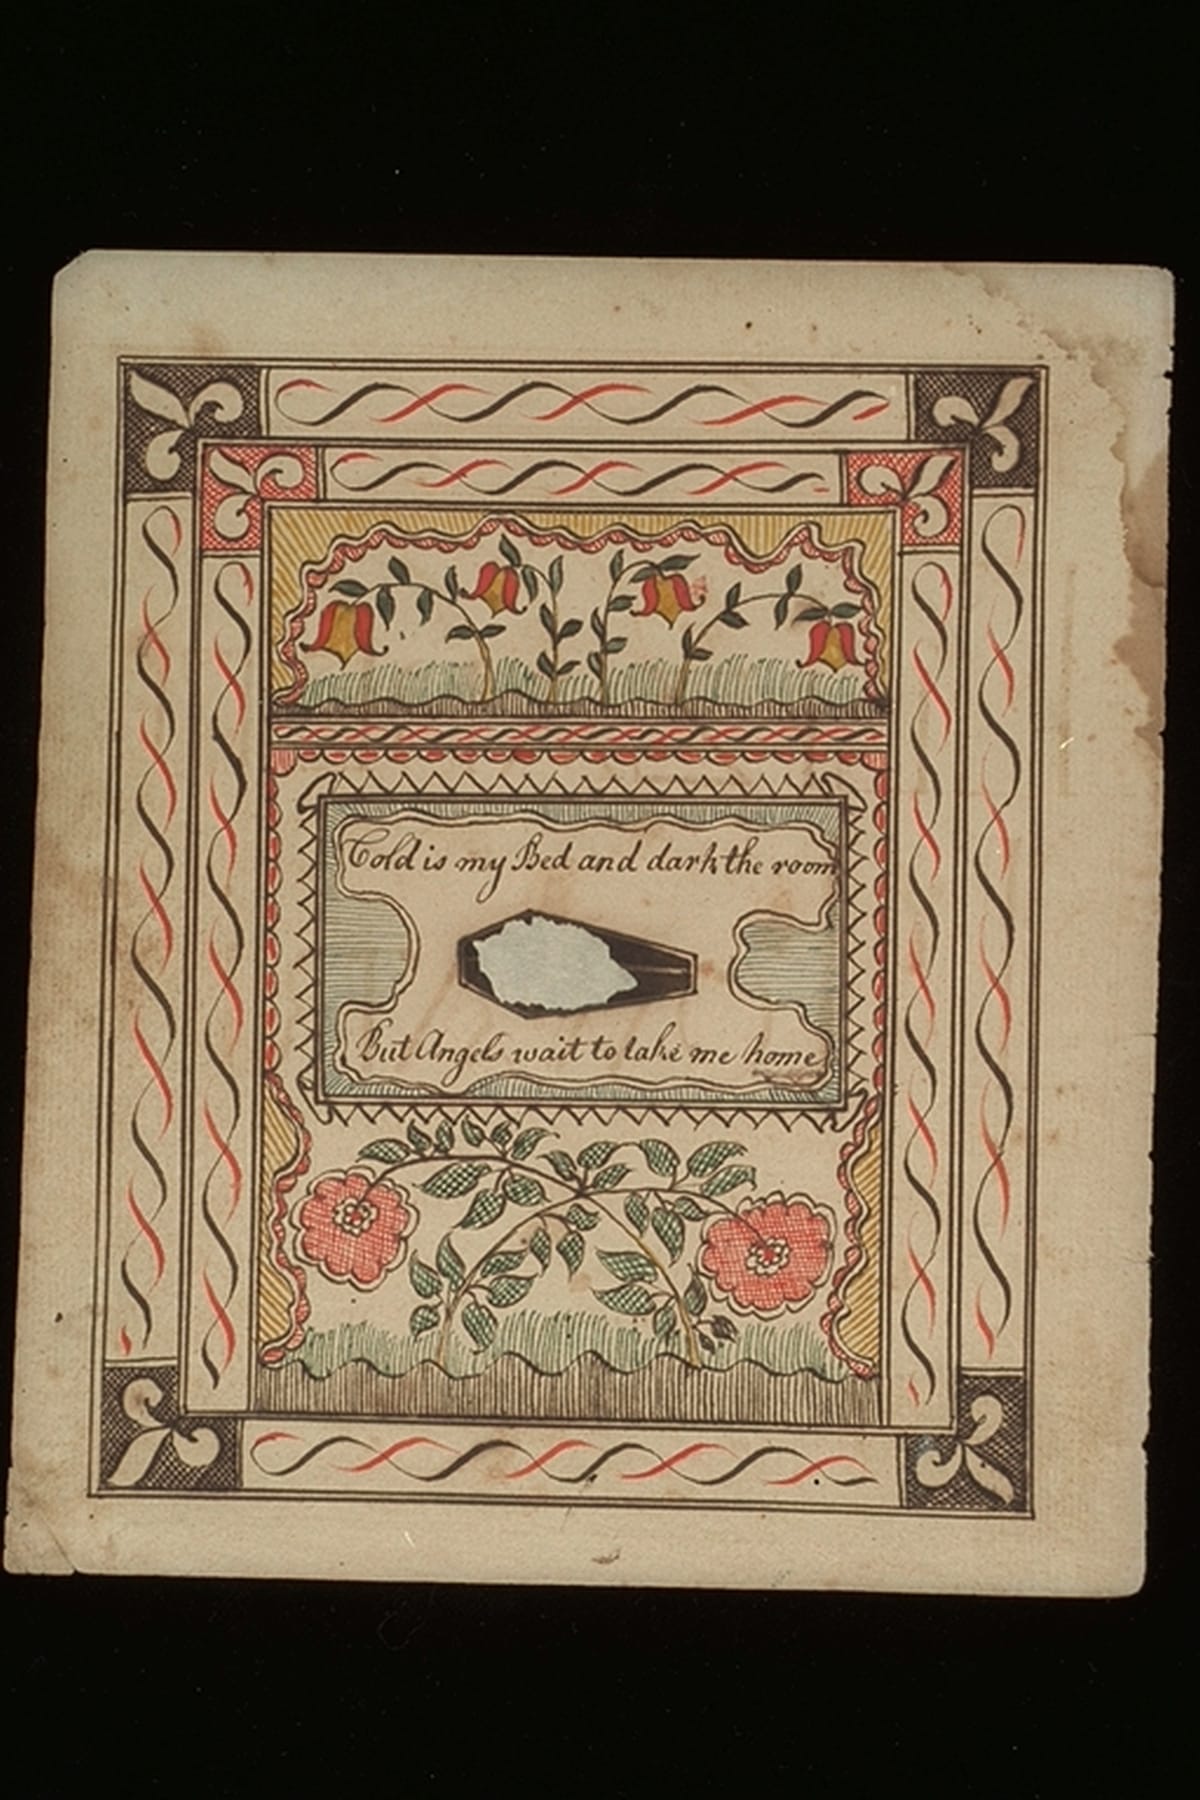 Cold is my Bed and dark the room
But Angels wait to take me home